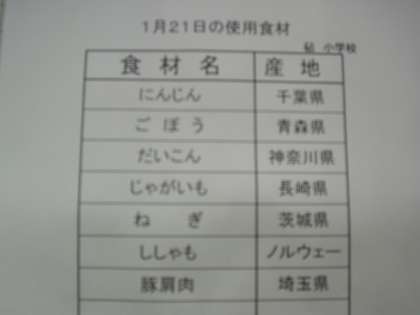 1月21日の使用食材
砧 小学校
食材名 産地
にんじん 千葉県
ごぼう 青森県
だいこん 神奈川県
じゃがいも 長崎県
ねぎ 茨城県
ししゃも ノルウェー
豚肩肉 埼玉県